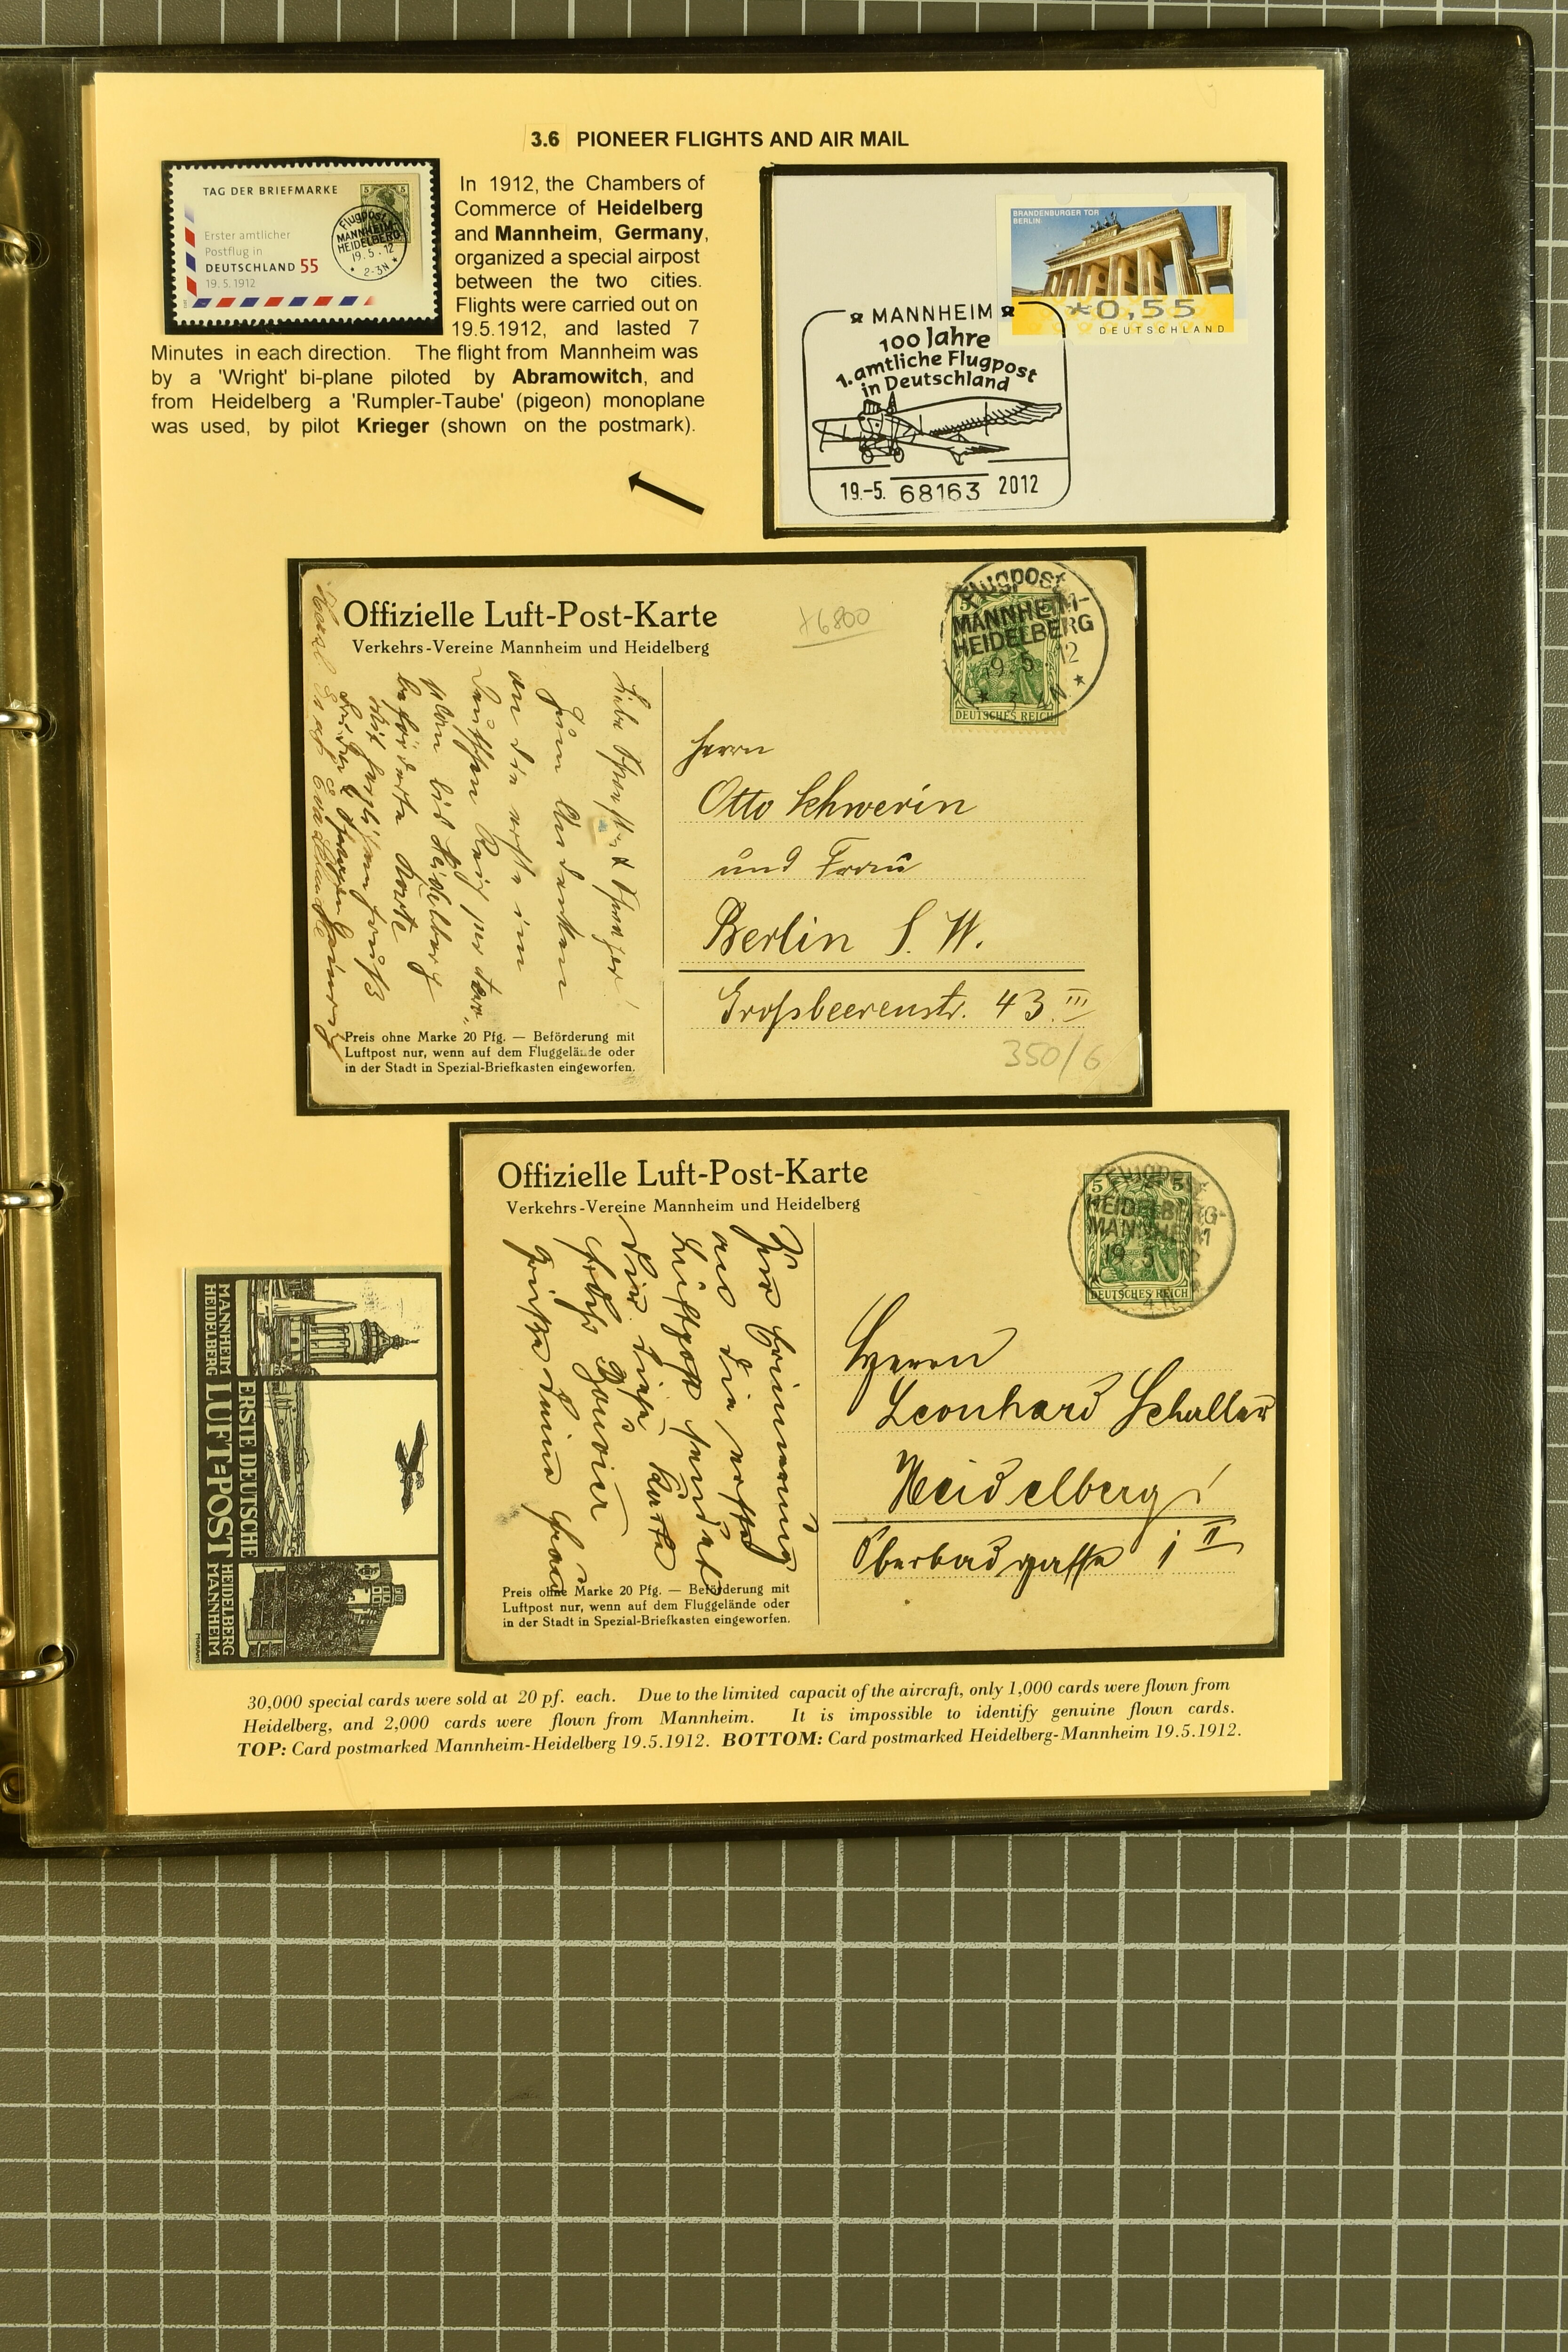 3.6 PIONEER FLIGHTS AND AIR MAIL
TAG DER BRIEFMARKE
Erster amtlicher
Postflug in
DEUTSCHLAND 55
19.5.1912
5 5
Flugpost
MANNHEIM
HEIDELBERG
19.5.12
* 2-3N *
In 1912, the Chambers of
Commerce of Heidelberg
and Mannheim, Germany,
organized a special airpost
between the two cities.
Flights were carried out on
19.5.1912, and lasted 7
Minutes in each direction. The flight from Mannheim was
by a 'Wright' bi-plane piloted by Abramowitch, and
from Heidelberg a 'Rumpler-Taube' (pigeon) monoplane
was used, by pilot Krieger (shown on the postmark).
BRANDENBURGER TOR
BERLIN
*0,55
DEUTSCHLAND
MANNHEIM
100 Jahre
1. amtliche Flugpost
in Deutschland
19.-5. 68163 2012
Offizielle Luft-Post-Karte
Verkehrs-Vereine Mannheim und Heidelberg
+6800
Flugpost
MANNHEIM-
HEIDELBERG
19.5.12
DEUTSCHES REICH
an die erste im
Herrn
Otto Schwerin
und Frau
Berlin S. W.
Grossbeerenstr. 43 III
350/6
Preis ohne Marke 20 Pfg. — Beförderung mit
Luftpost nur, wenn auf dem Fluggelände oder
in der Stadt in Spezial-Briefkasten eingeworfen.
Offizielle Luft-Post-Karte
Verkehrs-Vereine Mannheim und Heidelberg
Flugpost
5 5
HEIDELBERG-
MANNHEIM
19 5 12
DEUTSCHES REICH
Zur Erinnerung
an die erste
Luftpost sendet
Dir diese Karte
Herrn
Leonhard Schaller
Heidelberg!
Oberbadgasse 1 II
Preis ohne Marke 20 Pfg. — Beförderung mit
Luftpost nur, wenn auf dem Fluggelände oder
in der Stadt in Spezial-Briefkasten eingeworfen.
MANNHEIM
HEIDELBERG
ERSTE DEUTSCHE
LUFT-POST
HEIDELBERG
MANNHEIM
30,000 special cards were sold at 20 pf. each. Due to the limited capacit of the aircraft, only 1,000 cards were flown from
Heidelberg, and 2,000 cards were flown from Mannheim. It is impossible to identify genuine flown cards.
TOP: Card postmarked Mannheim-Heidelberg 19.5.1912. BOTTOM: Card postmarked Heidelberg-Mannheim 19.5.1912.